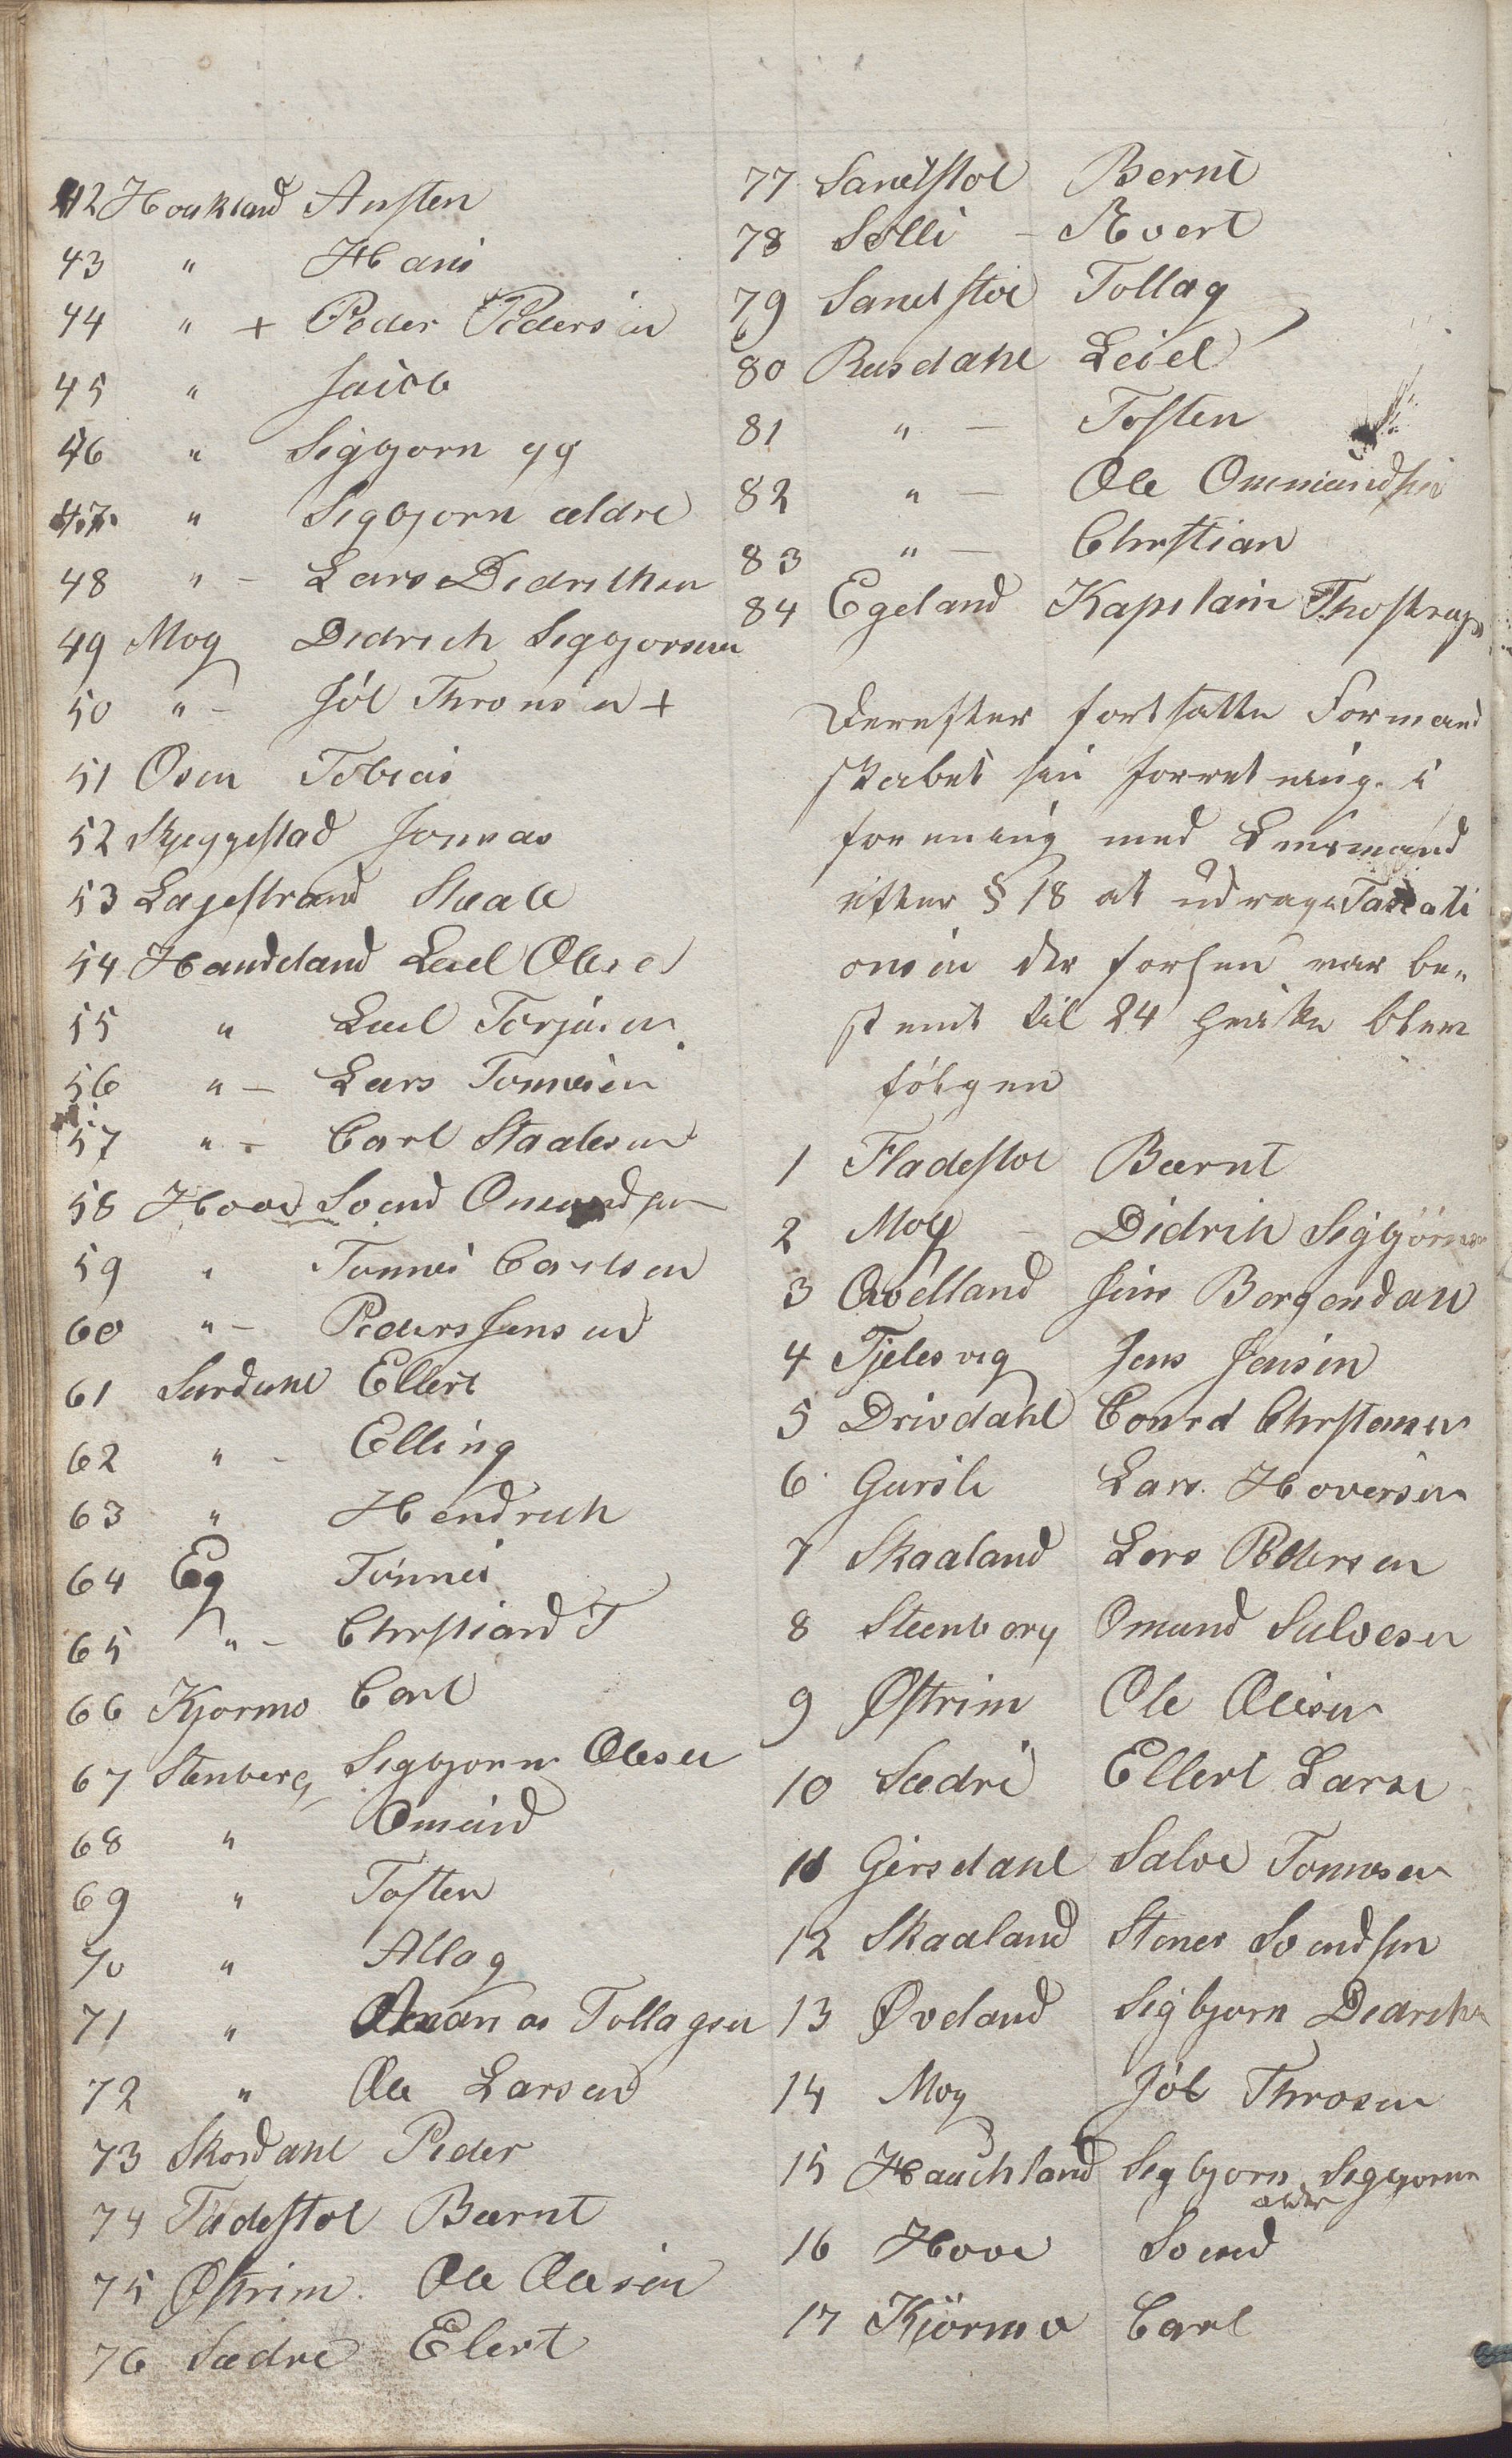 42 Houkland Austen
43 " Hans
44 " + Peder Pedersen
45 " Jacob
46 " Sigbjorn yg
47 " Sigbjorn ældre
48 " - Lars Didrikhsen
49 Mog Didrich Sigbjornsen
50 " - Jôl Thronsen +
51 Osen Tobias
52 Skjeggestad Jonnas
53 Lagestrand Staale
54 Haudeland Leel Olsen
55 " Leel Terjesen
56 " - Lars Tonnesen
57 " - Carl Staalesen
58 Hove Svend Omundsen
59 " Tonnes Carlsen
60 " - Peders Jensen
61 Surdahl Ellert
62 " - Elling
63 " Hendrich
64 Eg Tönnes
65 " - Christian T
66 Kjormo Carl
67 Stenberg Sigbjorn Olesen
68 " Omund
69 " Tosten
70 " Allag
71 " Ananias Tollagsen
72 " Ole Larsen
73 Skordahl Peder
74 Fladestol Bærnt
75 Østrim Ole Olesen
76 Sædre Elert
77 Sandstol Bernt
78 Solli - Evert
79 Sandstol Tollag
80 Rusdahl Leiel
81 " - Tosten
82 " - Ole Ommundsen
83 " - Christian
84 Egeland Kapitain Thostrup
Derefter fortsatte Formand
skabet sin forretning i
forening med Lensmand
efter § 18 at udtage Taxati
onsm der forhen var be„
stemt til 24 hvilke blev
følgen
1 Fladestol Bærnt
2 Mog - Didrik Sigbjörnsen
3 Qvelland Jens Borgendahl
4 Tjelesvig Jens Jensen
5 Drivdahl Conrd Christensen
6 Gursli Lars Hoversen
7 Skaaland Lars Pedersen
8 Steenborg Omund Salvesen
9 Østrim Ole Olesen
10 Sædre Ellert Larse
11 Girsdahl Salve Tonnesen
12 Skaaland Stener Svendsen
13 Øveland Sigbjorn Didriks
14 Mog Jôl Throsen
15 Hauchland Sigbjorn Sigbjorns
ældre
16 Hove Svend
17 Kjörmo Carl